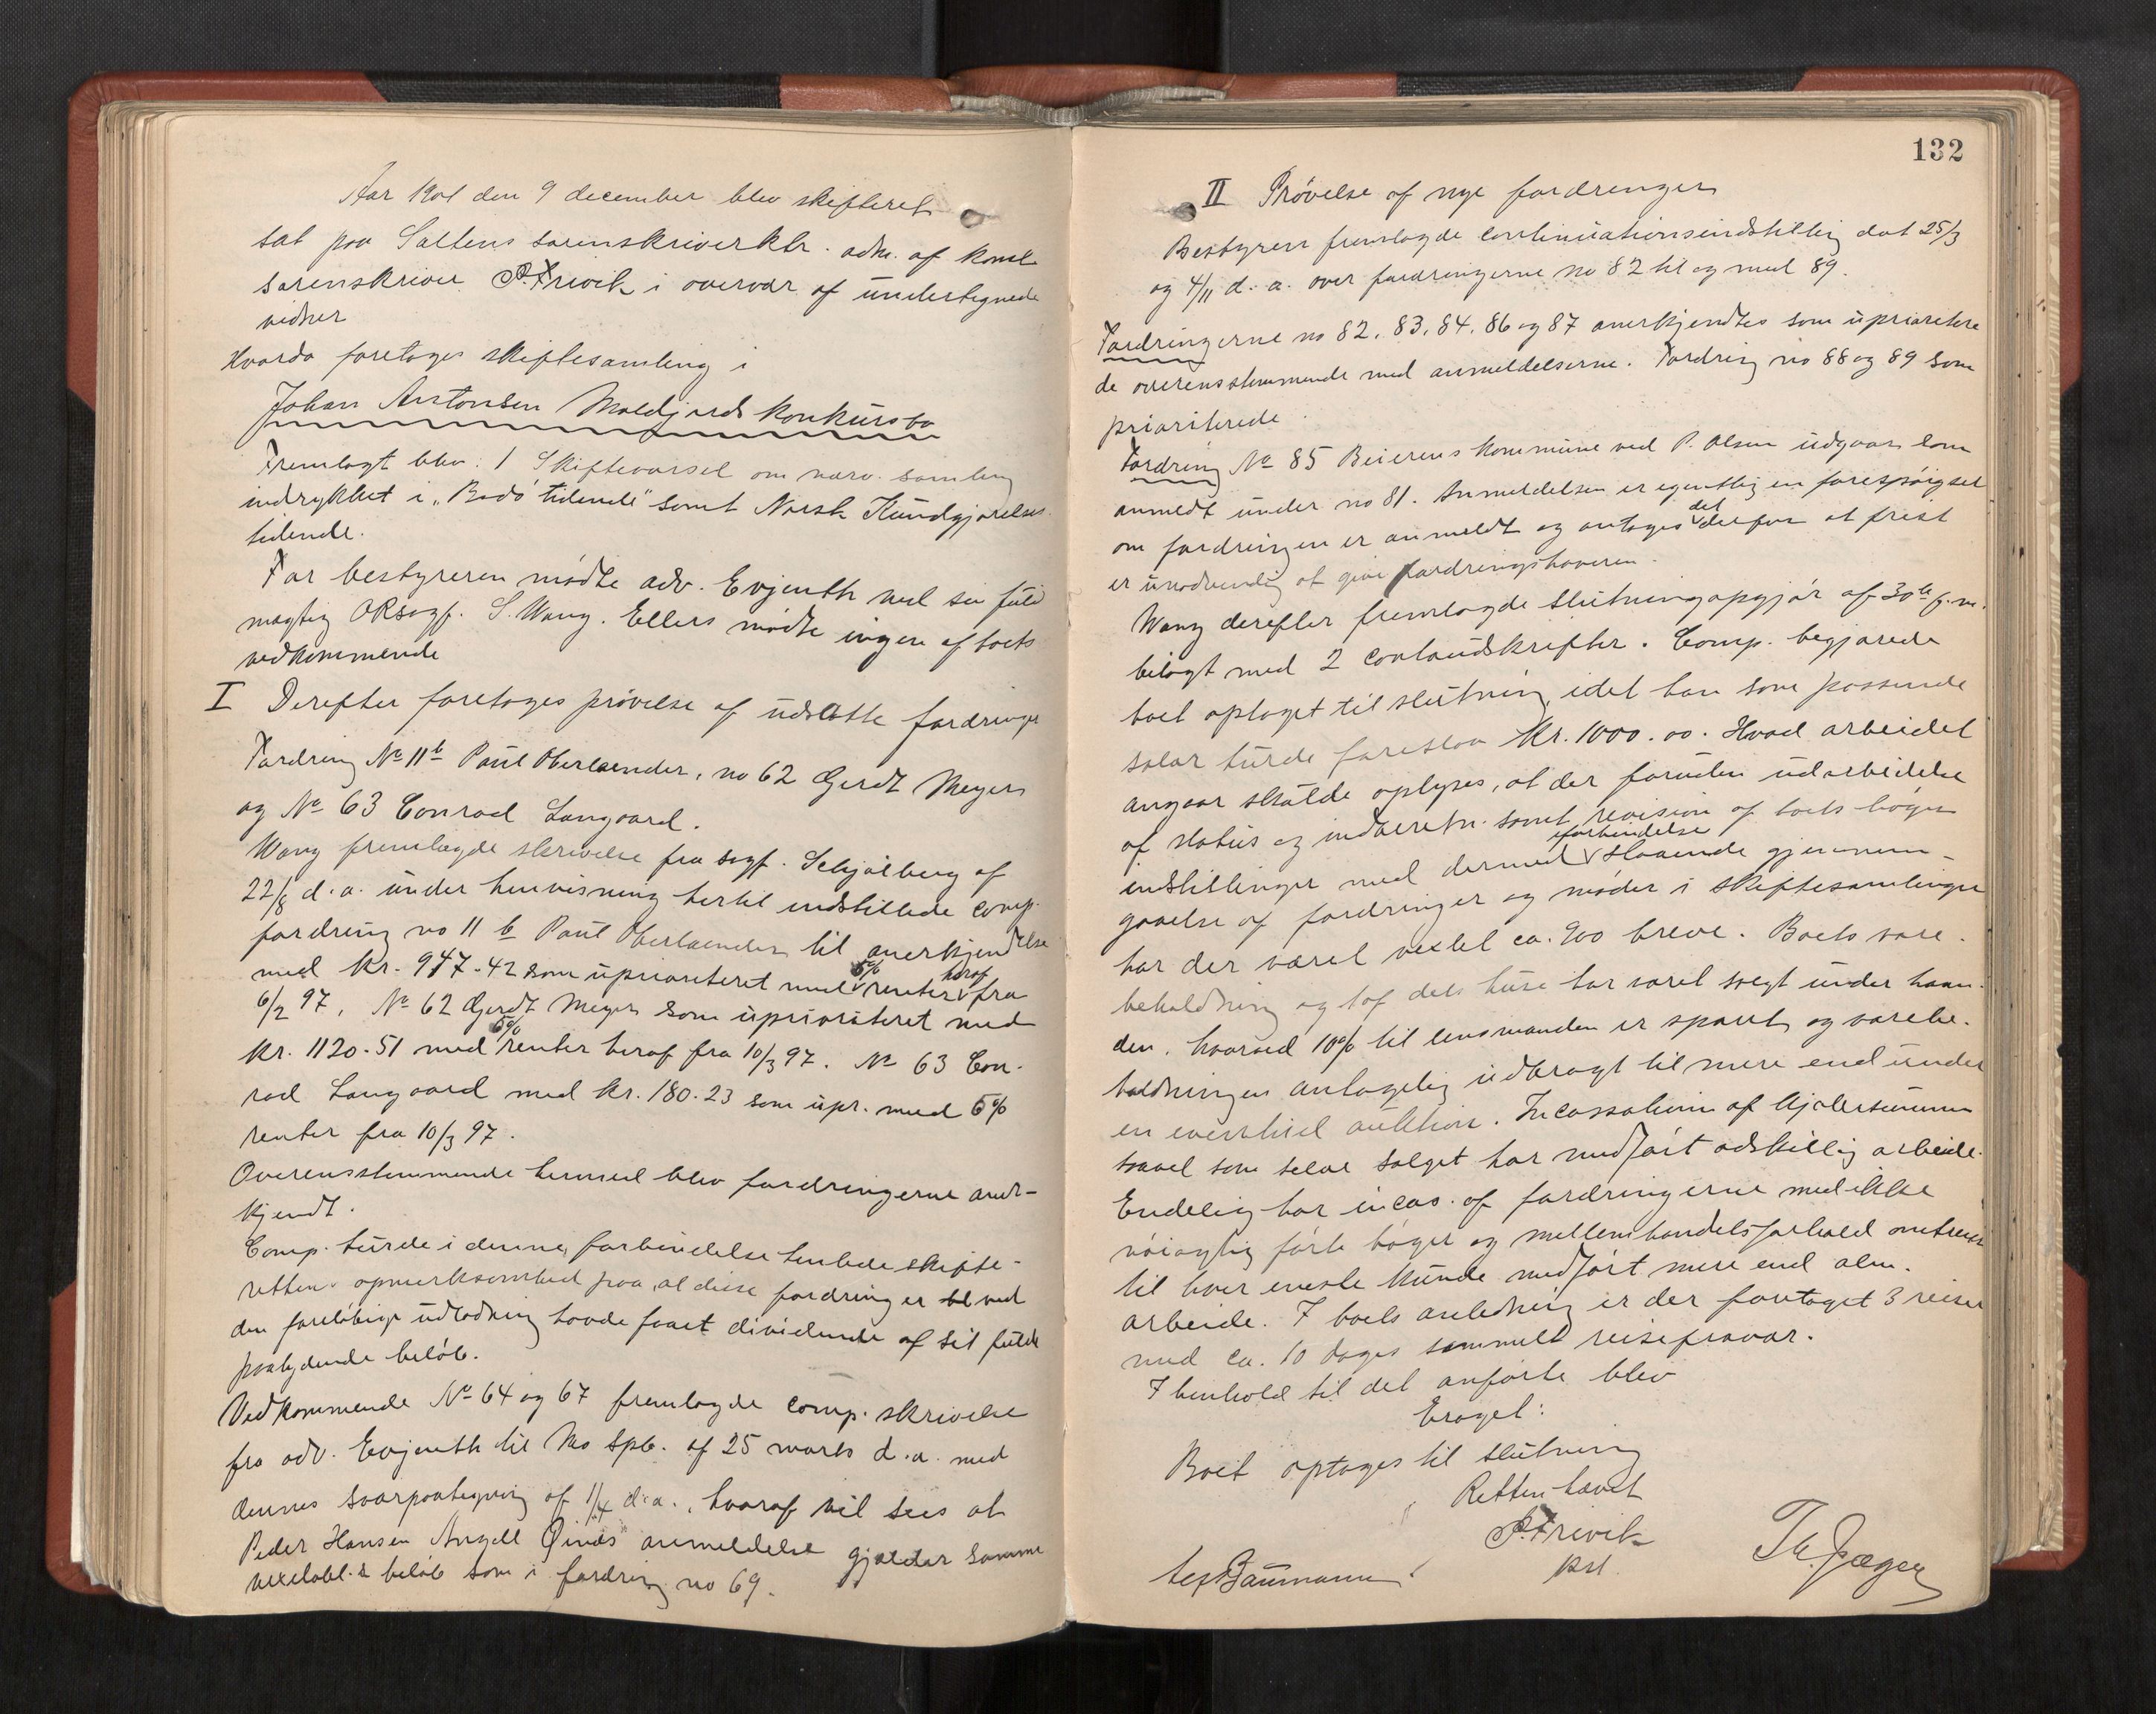 Aar 1901 den 9 december blev skifteret
sat paa Saltens sorenskriverktr. adm. af konst.
sorenskriver P. Frivik i overvær af undertegnede
vidner
Hvorda foretoges skiftesamling i
Johan Antonsen Moldjords konkursbo
Fremlagt blev: 1 Skiftevarsel om nærv. samling
indrykket i „Bodø tidende" samt Norsk Kundgjørelses-
tidende.
For bestyreren mødte adv. Evjenth ved sin fuld
mægtig ORsagf. S. Wang. Ellers mødte ingen af boets
vedkommende
I Derefter foretoges prøvelse af udsatte fordringer
Fordring No 11b Paul Oberlaender, no 62 Gerdt Meyer
og No 63 Conrad Langaard.
Wang fremlagde skrivelse fra sagf. Schjølberg af
22/8 d.a. under henvisning hertil indstillede comp.
fordring no 11 b Paul Oberlaender til anerkjendelse
med kr. 947.42 som uprioriteret med 5% renter heraf fra
6/2 97, No 62 Gerdt Meyer som uprioriteret med
kr. 1120.51 med 5% renter heraf fra 10/3 97. No 63 Con-
rad Langaard med kr. 180.23 som upr. med 5%
renter fra 10/3 97.
Overensstemmende hermed blev fordringerne aner-
kjendt.
Comp. turde i denne forbindelse henlede skifte-
rettens opmerksomhed paa, at disse fordringer bl ved
den foreløbige udlodning havde faaet dividende af sit fulde
paalydende beløb.
Vedkommende No 64 og 67 fremlagde comp. skrivelse
fra adv. Evjenth til Mo Spb. af 25 marts d.a. med
dennes svarpaategning af 1/4 d.a., hvoraf vil sees at
Peder Hansen Angell Qinds anmeldelse gjælder samme
vexelobl.s beløb som i fordring no 69.
132
II Prøvelse af nye fordringer
Bestyreren fremlagde continuationsindstilling dat 25/3
og 4/11 d.a. over fordringerne no 82 til og med 89.
Fordringerne no 82, 83, 84, 86 og 87 anerkjendtes som uprioritere
de overensstemmende med anmeldelserne. Fordring no 88 og 89 som
prioriterede.
Fordring No 85 Beierens kommune ved P. Olsen udgaar som
anmeldt under no 81. Anmeldelsen er egentlig en forespørgsel
om fordringen er anmeldt og antages det derfor at frist
er unødvendig at give fordringshaveren.
Wang derefter fremlagde slutningsopgjør af 30te f.m.
bilagt med 2 contoudskrifter. Comp. begjærede
boet optaget til slutning, idet han som passende
salær turde foreslaa kr. 1000.00. Hvad arbeidet
angaar skulde oplyses, at der foruden udarbeidelse
af status og indberetn. samt revision af boets bøger
indstillinger med dermed i forbindelse staaende gjennem-
gaaelse af fordringer og møder i skiftesamlinger
har der været vexlet ca. 900 breve. Boets vare-
beholdning og 1 af dets huse har været solgt under haan-
den, hvorved 10% til lensmanden er sparet, og varebe-
holdningen antagelig udbragt til mere end under
en eventuel auktion. Incassationen af kjøbesummen
saavel som selve salget har medført adskillig arbeide.
Endelig har incas. af fordringerne med ikke
nøiagtig førte bøger og mellemhandelsforhold omtrent
til hver eneste kunde medført mere end alm.
arbeide. I boets anledning er der foretaget 3 reiser
med ca. 10 dages sammelt reisefravær.
I henhold til det anførte blev
Eragtet:
Boet optages til slutning
Retten hævet
P. Frivik
kst.
Th. Jæger
Baumann